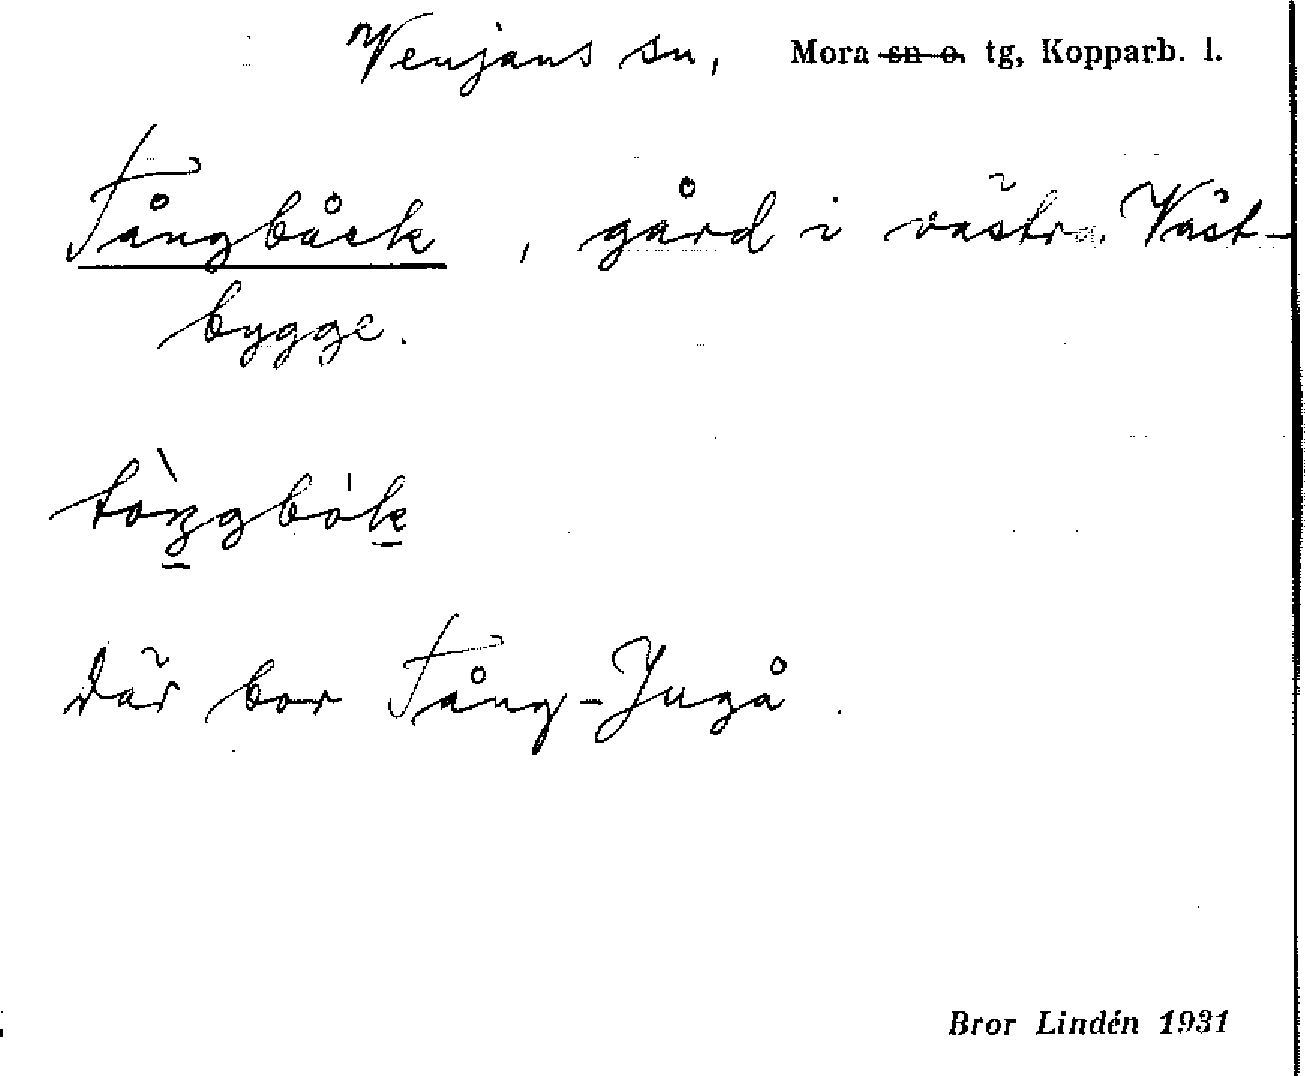 Venjans sn, Mora sn o. tg, Kopparb. l.
Tångbåck, gård i västra Väst-
bygge.
tòngbók
Där bor Tång-Jugå.
Bror Lindén 1931